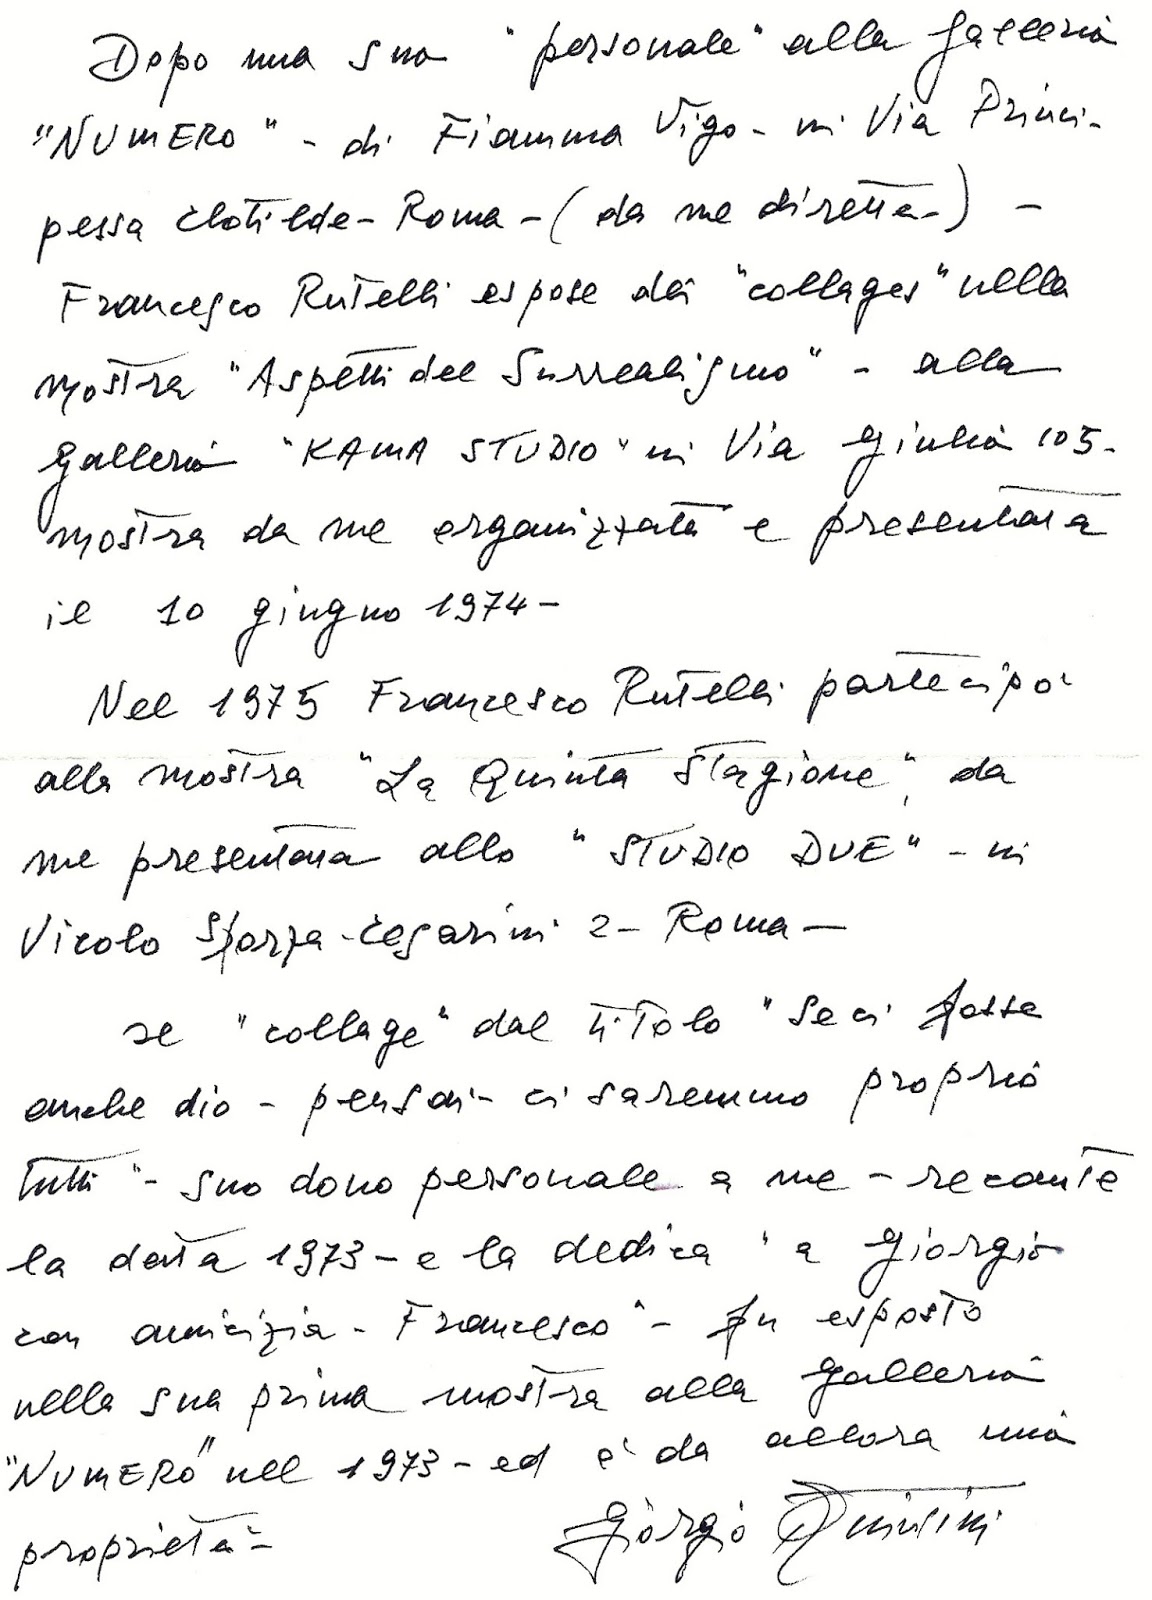 Dopo una sua "personale" alla Galleria
"NUMERO" - di Fiamma Vigo - in Via Princi-
pessa Clotilde - Roma - (da me diretta -) -
Francesco Rutelli espose dei "collages" nella
mostra "Aspetti del Surrealismo" - alla
Galleria "KAMA STUDIO" in Via Giulia 105.
mostra da me organizzata e presentata
il 10 giugno 1974 -
Nel 1975 Francesco Rutelli partecipò
alla mostra "La Quinta Stagione", da
me presentata allo "STUDIO DUE" - in
Vicolo Sforza - Cesarini 2 - Roma -
Il "collage" dal titolo "Se ci fosse
anche dio - pensai - ci saremmo proprio
tutti" - suo dono personale a me - recante
la data 1973 - e la dedica "a Giorgio
con amicizia - Francesco" - fu esposto
nella sua prima mostra alla Galleria
"NUMERO" nel 1973 - ed è da allora mia
proprietà -
Giorgio